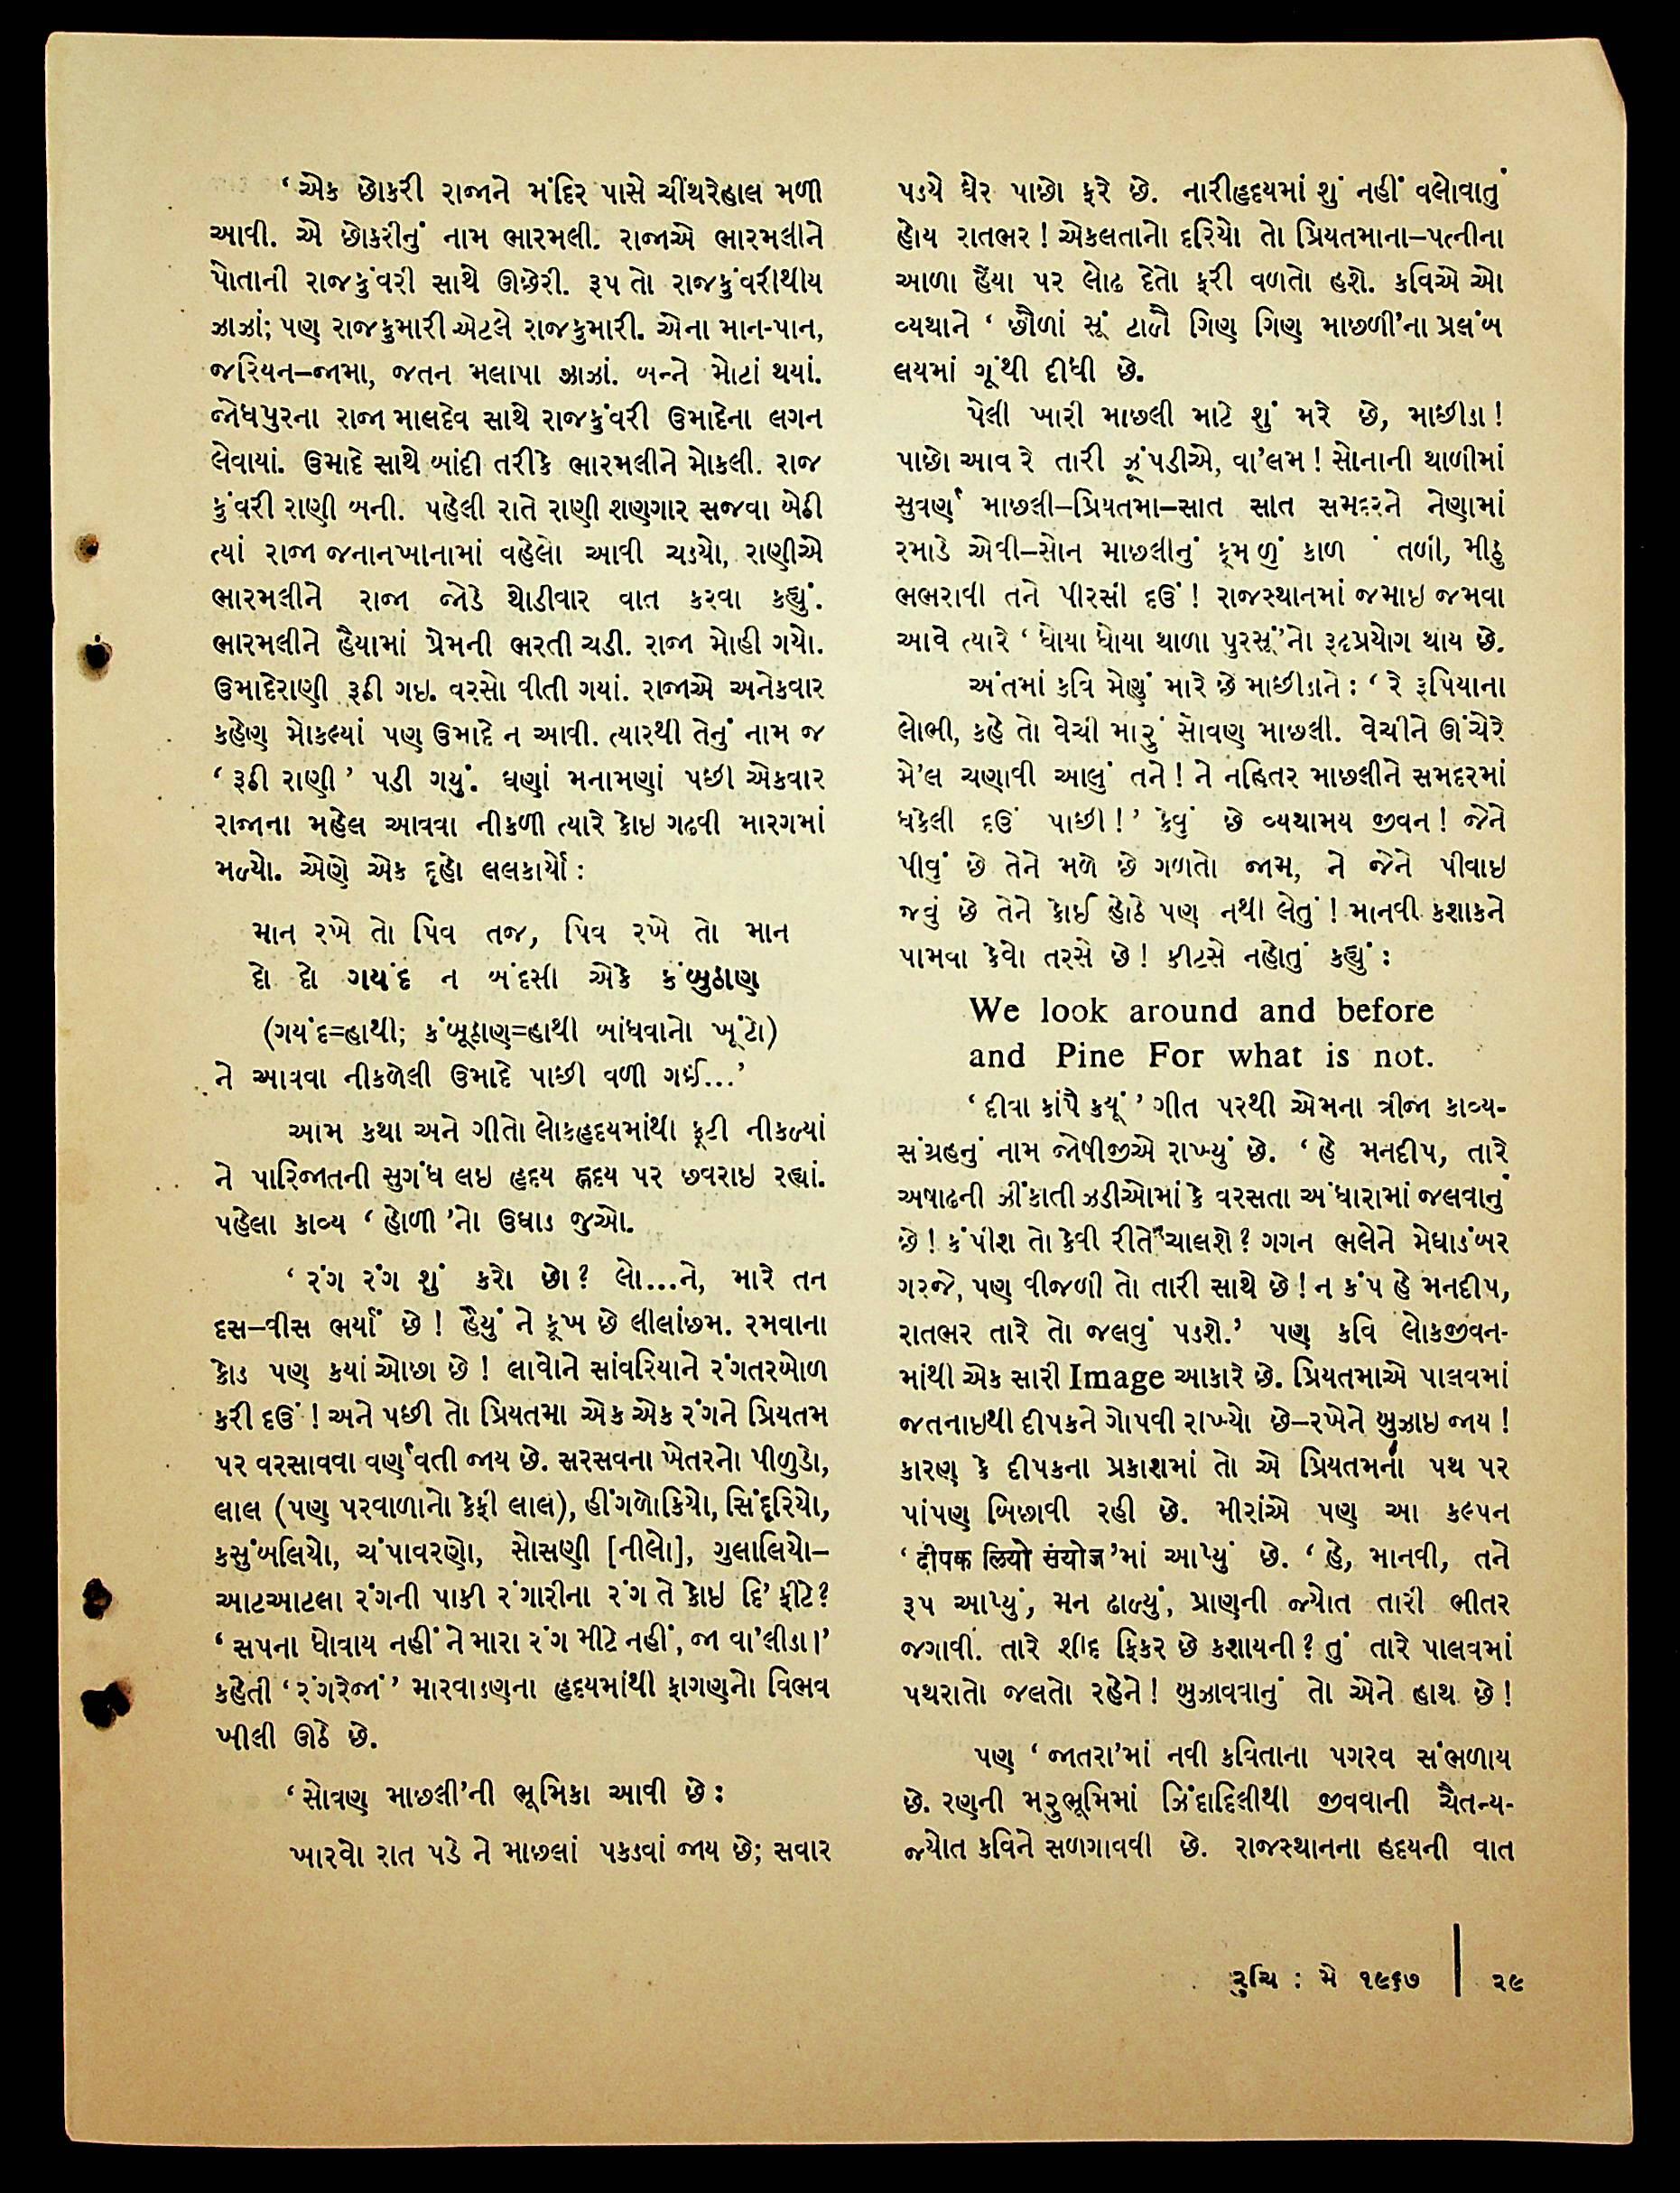 ‘ એક છોકરી રાજાને મંદિર પાસે ચીંથરેહાલ મળી
આવી. એ છોકરીનું નામ ભારમલી. રાજાએ ભારમલીને
પોતાની રાજકુંવરી સાથે ઊછેરી. રૂપ તો રાજકુંવરીથીય
ઝાઝાં; પણ રાજકુમારી એટલે રાજકુમારી. એના માન-પાન,
જરિયન–જામા, જતન મલાપા ઝાઝાં. બન્ને મોટાં થયાં.
જોધપુરના રાજા માલદેવ સાથે રાજકુંવરી ઉમાદેના લગન
લેવાયાં. ઉમાદે સાથે બાંદી તરીકે ભારમલીને મોકલી. રાજ
કુંવરી રાણી બની. પહેલી રાતે રાણી શણગાર સજવા બેઠી
ત્યાં રાજા જનાનખાનામાં વહેલો આવી ચડયો, રાણીએ
ભારમલીને રાજા જોડે થોડીવાર વાત કરવા કહ્યું.
ભારમલીને હૈયામાં પ્રેમની ભરતી ચડી. રાજા મોહી ગયો.
ઉમાદેરાણી રૂઠી ગઇ. વરસો વીતી ગયાં. રાજાએ અનેકવાર
કહેણ મોકલ્યાં પણ ઉમાદે ન આવી. ત્યારથી તેનું નામ જ
‘ રૂઠી રાણી ’ પડી ગયું. ઘણાં મનામણાં પછી એકવાર
રાજાના મહેલ આવવા નીકળી ત્યારે કોઇ ગઢવી મારગમાં
મળ્યો. એણે એક દૂહો લલકાર્યો :
માન રખે તો પિવ તજ, પિવ રખે તો માન
દો દો ગયંદ ન બંદસી એકે કંબુઠાણ
(ગયંદ=હાથી; કંબૂઠાણ=હાથી બાંધવાનો ખૂંટો)
ને આવવા નીકળેલી ઉમાદે પાછી વળી ગઈ...’
આમ કથા અને ગીતો લોકહૃદયમાંથી ફૂટી નીકળ્યાં
ને પારિજાતની સુગંધ લઇ હૃદય હૃદય પર છવરાઇ રહ્યાં.
પહેલા કાવ્ય ‘ હોળી ’નો ઉઘાડ જુઓ.
‘ રંગ રંગ શું કરો છો? લો...ને, મારે તન
દસ–વીસ ભર્યાં છે ! હૈયું ને કૂખ છે લીલાંછમ. રમવાના
કોડ પણ કયાં ઓછા છે ! લાવોને સાંવરિયાને રંગતરબોળ
કરી દઉં ! અને પછી તો પ્રિયતમા એક એક રંગને પ્રિયતમ
પર વરસાવવા વર્ણવતી જાય છે. સરસવના ખેતરનો પીળુડો,
લાલ (પણ પરવાળાનો કેફી લાલ), હીંગળોકિયો, સિંદૂરિયો,
કસુંબલિયો, ચંપાવરણો, સોસણી [નીલો], ગુલાલિયો–
આટઆટલા રંગની પાકી રંગારીના રંગ તે કોઇ દિ' ફીટે?
‘ સપના ધોવાય નહીં ને મારા રંગ મીટે નહીં, જા વા'લીડા।’
કહેતી ‘ રંગરેજાં ’ મારવાડણના હૃદયમાંથી ફાગણનો વિભવ
ખીલી ઊઠે છે.
‘સોવણ માછલી’ની ભૂમિકા આવી છે :
ખારવો રાત પડે ને માછલાં પકડવાં જાય છે; સવાર
પડયે ઘેર પાછો ફરે છે. નારીહૃદયમાં શું નહીં વલોવાતું
હોય રાતભર ! એકલતાનો દરિયો તો પ્રિયતમાના–પત્નીના
આળા હૈયા પર લોઢ દેતો ફરી વળતો હશે. કવિએ એ
વ્યથાને ‘ છૌળાં સૂં ટાળૈ ગિણ ગિણ માછળી’ના પ્રલંબ
લયમાં ગૂંથી દીધી છે.
પેલી ખારી માછલી માટે શું મરે છે, માછીડા !
પાછો આવ રે તારી ઝૂંપડીએ, વા'લમ ! સોનાની થાળીમાં
સુવર્ણ માછલી–પ્રિયતમા–સાત સાત સમદરને નેણામાં
રમાડે એવી–સોન માછલીનું કૂમળું કાળ તળી, મીઠુ
ભભરાવી તને પીરસી દઉં ! રાજસ્થાનમાં જમાઇ જમવા
આવે ત્યારે ‘ ધોયા ધોયા થાળા પુરસૂં’નો રૂઢપ્રયોગ થાય છે.
અંતમાં કવિ મેણું મારે છે માછીડાને : ‘ રે રૂપિયાના
લોભી, કહે તો વેચી મારું સોવણ માછલી. વેચીને ઊંચેરે
મે'લ ચણાવી આલું તને ! ને નહિતર માછલીને સમદરમાં
ધકેલી દઉં પાછી ! ’ કેવું છે વ્યથામય જીવન ! જેને
પીવું છે તેને મળે છે ગળતો જામ, ને જેને પીવાઇ
જવું છે તેને કોઈ હોઠે પણ નથી લેતું ! માનવી કશાકને
પામવા કેવો તરસે છે ! કીટસે નહોતું કહ્યું :
We look around and before
and Pine For what is not.
‘ દીવા કાંપૈ કયૂં ’ ગીત પરથી એમના ત્રીજા કાવ્ય-
સંગ્રહનું નામ જોષીજીએ રાખ્યું છે. ‘ હે મનદીપ, તારે
અષાઢની ઝીંકાતી ઝડીઓમાં કે વરસતા અંધારામાં જલવાનું
છે ! કંપીશ તો કેવી રીતે ચાલશે ? ગગન ભલેને મેઘાડંબર
ગરજે, પણ વીજળી તો તારી સાથે છે ! ન કંપ હે મનદીપ,
રાતભર તારે તો જલવું પડશે.’ પણ કવિ લોકજીવન-
માંથી એક સારી Image આકારે છે. પ્રિયતમાએ પાલવમાં
જતનાઇથી દીપકને ગોપવી રાખ્યો છે–રખેને બુઝાઇ જાય !
કારણ કે દીપકના પ્રકાશમાં તો એ પ્રિયતમનાં પથ પર
પાંપણ બિછાવી રહી છે. મીરાંએ પણ આ કલ્પન
‘ दीपक लियो संयोज’માં આપ્યું છે. ‘ હે, માનવી, તને
રૂપ આપ્યું, મન ઢાળ્યું, પ્રાણની જ્યોત તારી ભીતર
જગાવી. તારે શીદ ફિકર છે કશાયની ? તું તારે પાલવમાં
પથરાતો જલતો રહેને ! બુઝાવવાનું તો એને હાથ છે !
પણ ‘ જાતરા’માં નવી કવિતાના પગરવ સંભળાય
છે. રણની મરુભૂમિમાં ઝિંદાદિલીથી જીવવાની ચૈતન્ય-
જ્યોત કવિને સળગાવવી છે. રાજસ્થાનના હૃદયની વાત
રુચિ : મે ૧૯૬૭ | ૨૯